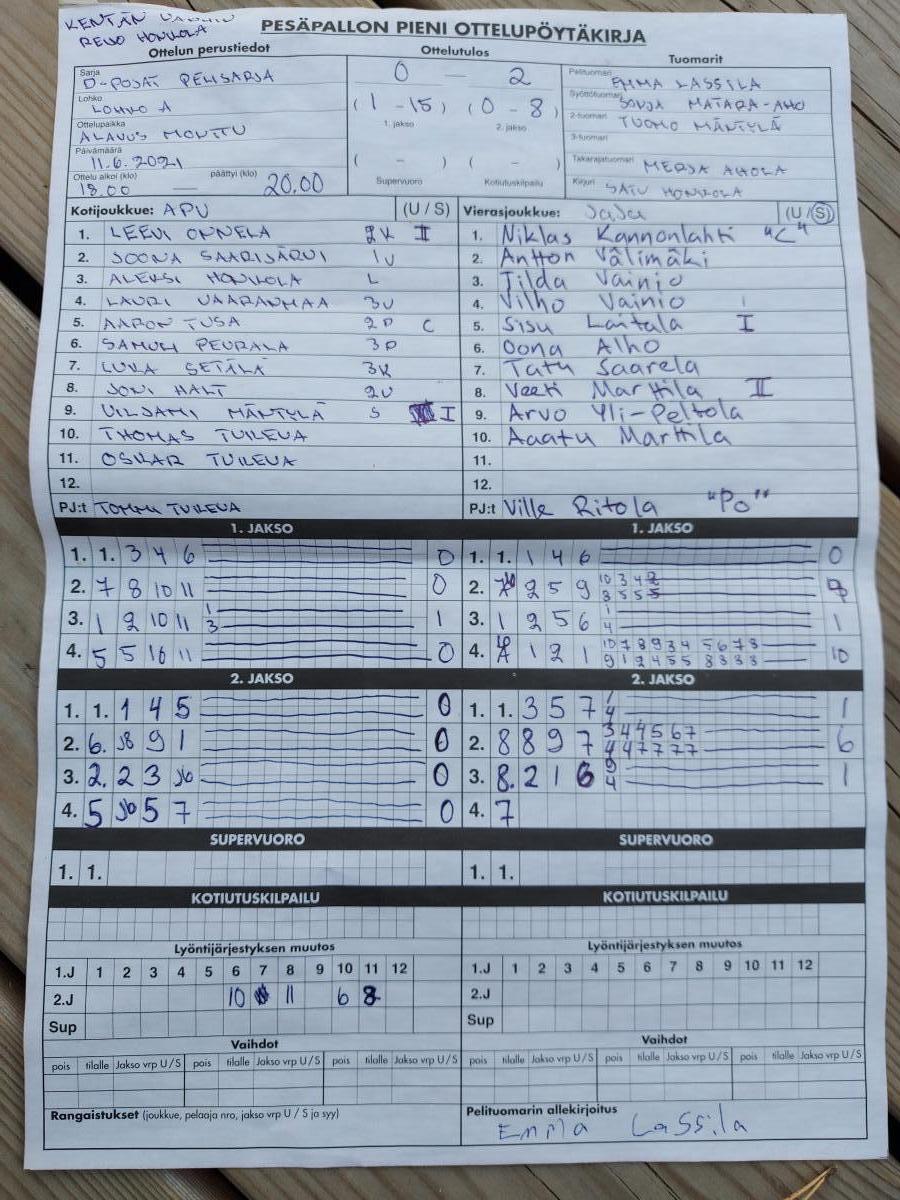 KENTÄN VANHIN
REIJO HONKOLA
PESÄPALLON PIENI OTTELUPÖYTÄKIRJA
Ottelun perustiedot
Ottelutulos
Tuomarit
Sarja
D-POJAT PEMSARJA
Lohko
LOHKO A
Ottelupaikka
ALAVUS MONTTU
Päivämäärä
11.6.2021
Ottelu alkoi (klo) päättyi (klo)
18.00 — 20.00
0 — 2
(1 - 15) (0 - 8)
1. jakso 2. jakso
( - ) ( - )
Supervuoro Kotiutuskilpailu
Pelituomari
EMMA LASSILA
Syöttötuomari
SONJA MATARA-AHO
2-tuomari
TUOMO MÄNTYLÄ
3-tuomari
Takarajatuomari
MERJA AHOLA
Kirjuri
SATU HONKOLA
Kotijoukkue: APU (U / S)
1. LEEVI ONNELA 2K II
2. JOONA SAARISJÄRVI 1V
3. ALEKSI HONKOLA L
4. LAURI VAARANMAA 3V
5. AARON TUSA 2P C
6. SAMULI PEURALA 3P
7. LUKA SETÄLÄ 3K
8. JONI HALT 2V
9. VILJAMI MÄNTYLÄ S I
10. THOMAS TUILEVA
11. OSKAR TUILEVA
12.
PJ:t TOMMI TUILEVA
Vierasjoukkue: JaJu (U / S)
1. Niklas Kannonlahti "C"
2. Antton Välimäki
3. Tilda Vainio
4. Vilho Vainio
5. Sisu Laitala I
6. Oona Alho
7. Tatu Saarela
8. Veeti Marttila II
9. Arvo Yli-Peltola
10. Aaatu Marttila
11.
12.
PJ:t Ville Ritola "Po"
1. JAKSO
1. 1. 3 4 6 0
2. 7 8 10 11 0
3. 1 2 10 11 1 3 1
4. 5 5 10 11 0
1. JAKSO
1. 1. 1 4 6 0
2. 2 5 9 10 3 4 2
3 5 5 5
3. 1 2 5 6 1 4 1
4. 1 2 1 10 7 8 9 3 4 5 6 7 8 10
9 1 2 4 5 5 8 3 3 3
2. JAKSO
1. 1. 1 4 5 0
2. 6. J8 9 1 0
3. 2. 2 3 J6 0
4. 5 J6 5 7 0
2. JAKSO
1. 1. 3 5 7 1 4 1
2. 8 8 9 7 3 4 4 5 6 7 6
4 4 7 7 7 7
3. 8. 2 1 6 9 4 1
4. 7
SUPERVUORO
1. 1.
SUPERVUORO
1. 1.
KOTIUTUSKILPAILU
KOTIUTUSKILPAILU
Lyöntijärjestyksen muutos
1.J 1 2 3 4 5 6 7 8 9 10 11 12
2.J 10 11 6 8
Sup
Lyöntijärjestyksen muutos
1.J 1 2 3 4 5 6 7 8 9 10 11 12
2.J
Sup
Vaihdot
pois tilalle Jakso vrp U / S pois tilalle Jakso vrp U / S pois tilalle Jakso vrp U / S
Vaihdot
pois tilalle Jakso vrp U / S pois tilalle Jakso vrp U / S pois tilalle Jakso vrp U / S
Rangaistukset (joukkue, pelaaja nro, jakso vrp U / S ja syy)
Pelituomarin allekirjoitus
Emma Lassila